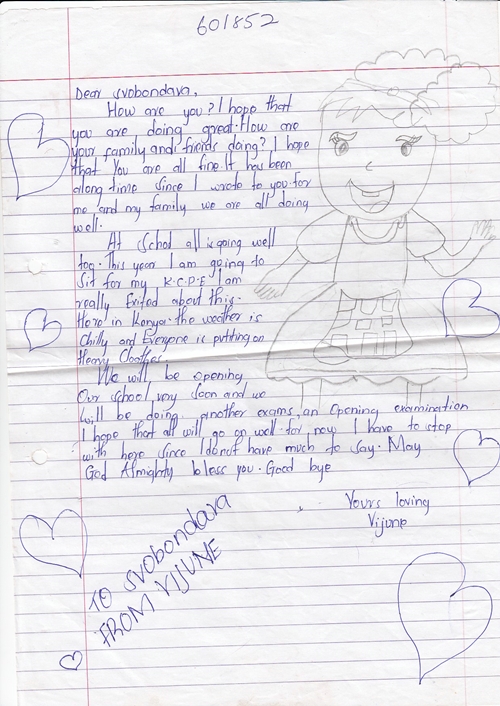 601852
Dear svobondava,
How are you? I hope that
you are doing great. How are
your family and friends doing? I hope
that You are all fine. It has been
along time since I wrote to you. for
me and my family we are all doing
well.
At School all is going well
too. This year I am going to
Sit for my K.C.P.E I am
really Exited about this.
Here in Kenya the weather is
Chilly and Everyone is putting on
Heavy Clothes.
We will be opening
Our school very soon and we
will be doing another exams, an Opening examination
I hope that all will go on well. for now I have to stop
with here since I do not have much to say. May
God Almighty bless you. Good bye
Yours loving
Vijune
TO SVOBONDARA
FROM VIJUNE